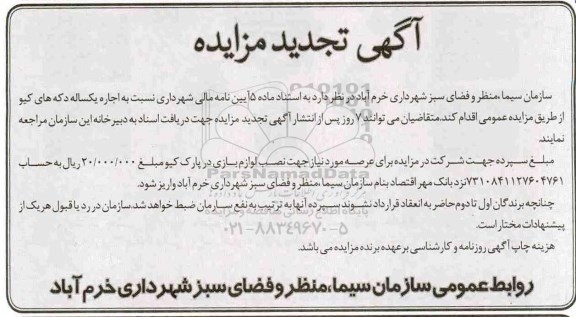 آگهی تجدید مزایده
سازمان سیما،منظر و فضای سبز شهرداری خرم آباد در نظر دارد به استناد ماده ۵ آیین نامه مالی شهرداری نسبت به اجاره یکساله دکه های کیو
از طریق مزایده عمومی اقدام کند.متقاضیان می توانند ۷ روز پس از انتشار آگهی تجدید مزایده جهت دریافت اسناد به دبیرخانه این سازمان مراجعه
نمایند.
مبلغ سپرده جهت شرکت در مزایده برای عرصه مورد نیاز جهت نصب لوازم بازی در پارک کیو مبلغ ۲۰/۰۰۰/۰۰۰ ریال به حساب
۷۳۱۰۸۴۱۱۲۷۶۰۴۷۶۱ نزد بانک مهر اقتصاد بنام سازمان سیما،منظر و فضای سبز شهرداری خرم آباد واریز شود.
چنانچه برندگان اول تا دوم حاضر به انعقاد قرارداد نشوند سپرده آنها به ترتیب به نفع سازمان ضبط خواهد شد.سازمان در رد یا قبول هر یک از
پیشنهادات مختار است.
هزینه چاپ آگهی روزنامه و کارشناسی بر عهده برنده مزایده می باشد.
روابط عمومی سازمان سیما،منظر و فضای سبز شهرداری خرم آباد
ParsNamadData
پایگاه اطلاع رسانی مناقصه و مزایده
۰۲۱-۸۸۳۴۹۶۷۰-۵